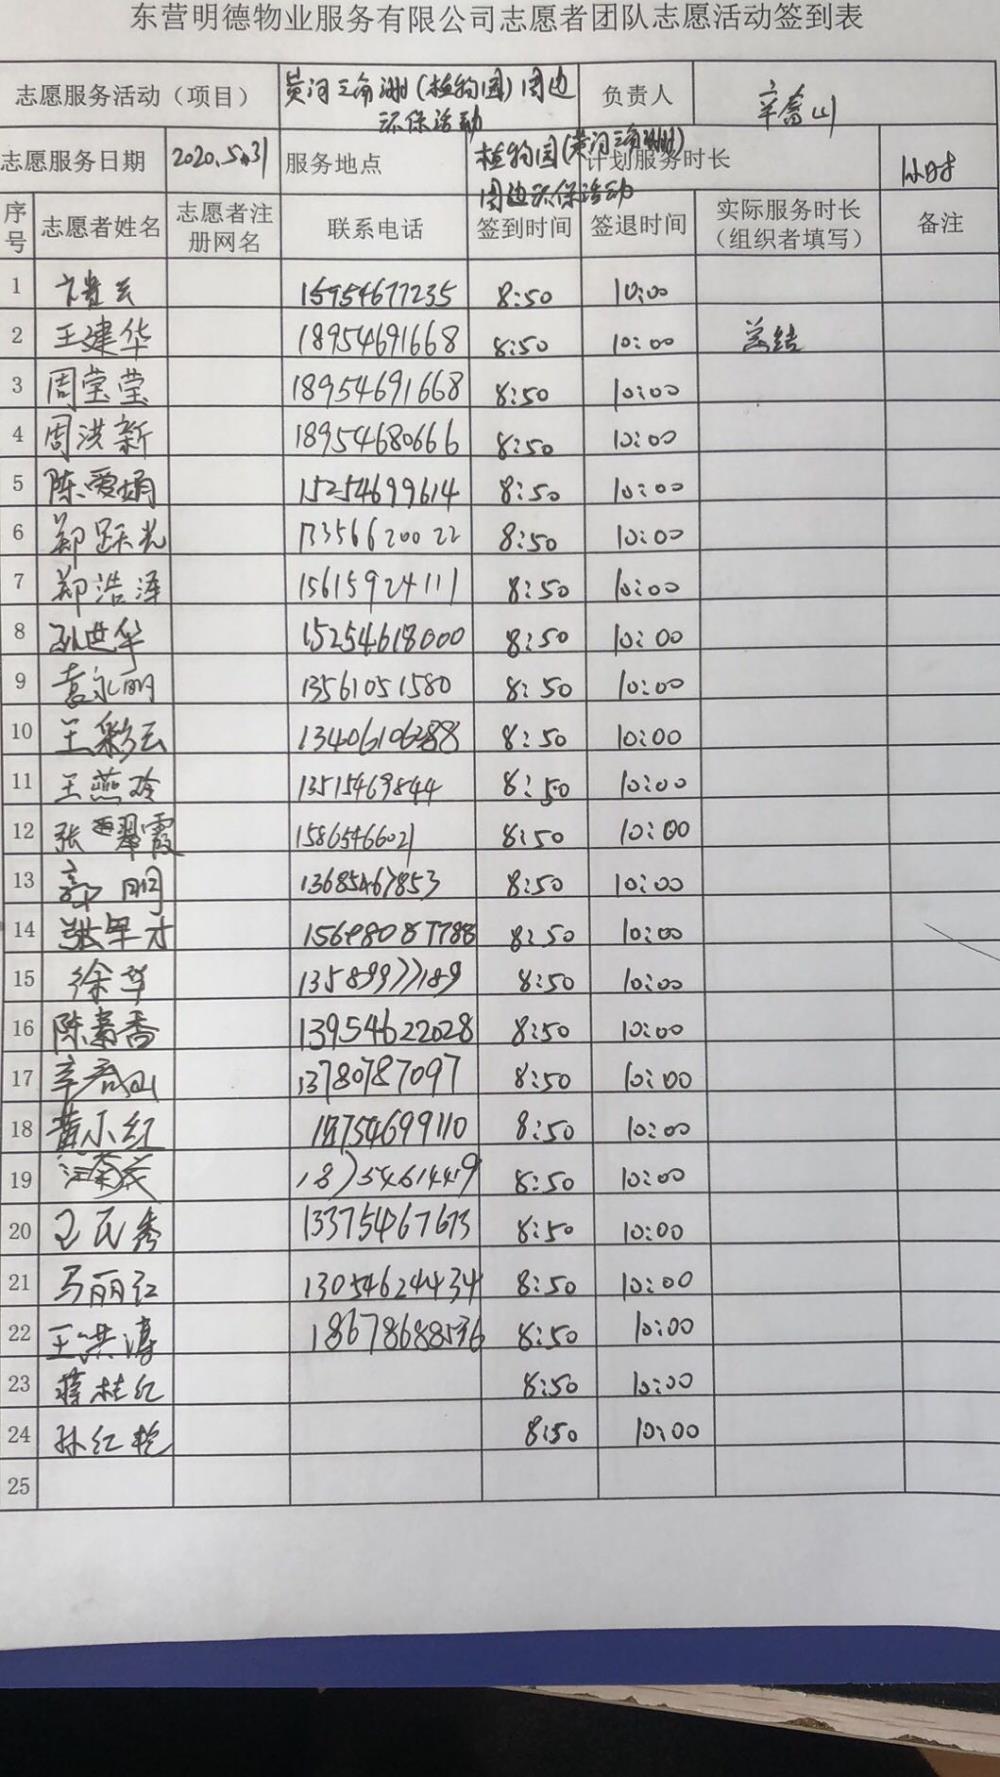 东营明德物业服务有限公司志愿者团队志愿活动签到表
志愿服务活动（项目） 黄河三角洲(植物园)周边 负责人
环保活动
志愿服务日期 2020.5.31 服务地点 植物园(黄河三角洲) 计划服务时长 1小时
周边环保活动
序号 志愿者姓名 志愿者注册网名 联系电话 签到时间 签退时间 实际服务时长（组织者填写） 备注
1 15954677235 8:50 10:00
2 王建华 18954691668 8:50 10:00 总结
3 周莹莹 18954691668 8:50 10:00
4 周洪新 18954680666 8:50 10:00
5 陈爱娟 15254699614 8:50 10:00
6 郑跃光 17356620022 8:50 10:00
7 郑浩泽 15615924111 8:50 10:00
8 孙世华 15254618000 8:50 10:00
9 袁永明 13561051580 8:50 10:00
10 王彩云 13406106388 8:50 10:00
11 王燕玲 13515469844 8:50 10:00
12 张翠霞 15865466021 8:50 10:00
13 郭明 13685467853 8:50 10:00
14 张军才 15698087788 8:50 10:00
15 徐华 13589977189 8:50 10:00
16 陈素香 13954622028 8:50 10:00
17 13780787097 8:50 10:00
18 黄小红 8:50 10:00
19 18754614419 8:50 10:00
20 王民秀 13375467673 8:50 10:00
21 马丽红 13054624434 8:50 10:00
22 王洪涛 18678688536 8:50 10:00
23 蒋桂红 8:50 10:00
24 孙红艳 8:50 10:00
25